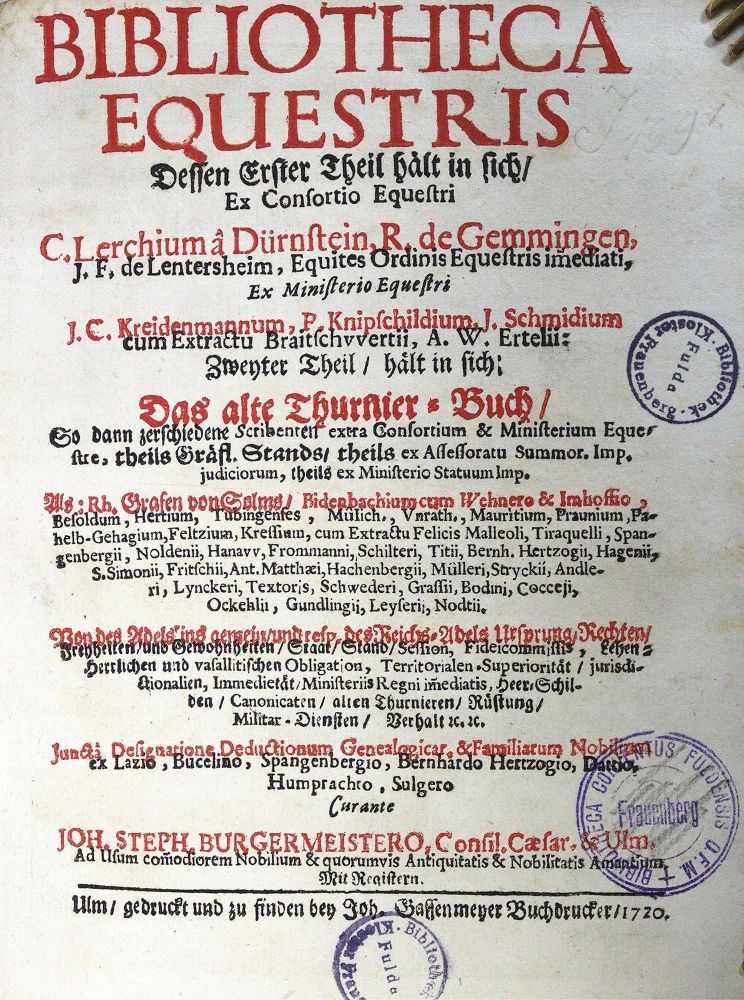 BIBLIOTHECA
EQUESTRIS
Dessen Erster Theil hält in sich/
Ex Consortio Equestri
C. Lerchium â Dürnstein, R. de Gemmingen,
J. F. de Lentersheim, Equites Ordinis Equestris im̄ediati,
Ex Ministerio Equestri
J. C. Kreidenmannum, P. Knipschildium, J. Schmidium
cum Extractu Braitschvvertii, A. W. Ertelii:
Zweyter Theil / hält in sich:
Das alte Thurnier-Buch/
So dann zerschiedene Scribenten extra Consortium & Ministerium Eque-
stre, theils Gräfl. Stands/ theils ex Assessoratu Summor. Imp.
judiciorum, theils ex Ministerio Statuum Imp.
Als: Rh. Grafen von Salms/ Bidenbachium cum Wehnero & Imhoffio,
Besoldum, Hertium, Tubingenses, Mülich., Vnrath., Mauritium, Praunium, Pa-
helb-Gehagium, Feltzium, Kressium, cum Extractu Felicis Malleoli, Tiraquelli, Span-
genbergii, Noldenii, Hanavv, Frommanni, Schilteri, Titii, Bernh. Hertzogii, Hagenii,
S. Simonii, Fritschii, Ant. Matthæi, Hachenbergii, Mülleri, Stryckii, Andle-
ri, Lynckeri, Textoris, Schwederi, Grassii, Bodini, Cocceji,
Ockehlii, Gundlingii, Leyserii, Nodtii.
Von des Adels ins gemein/und resp. des Reichs-Adels Ursprung/Rechten/
Freyheiten/und Gewohnheiten/ Staat/ Stand/ Session, Fideicommissis, Lehen-
Herrlichen und vasallitischen Obligation, Territorialen-Superiorität / jurisdi-
ctionalien, Immedietät/ Ministeriis Regni im̄ediatis, Heer-Schil-
den/ Canonicaten/ alten Thurnieren/ Rüstung/
Militar-Diensten/ Verhalt ꝛc. ꝛc.
Junctâ Designatione Deductionum Genealogicar. & Familiarum Nobilium
ex Lazio, Bucelino, Spangenbergio, Bernhardo Hertzogio, Datrio,
Humprachto, Sulgero
Curante
JOH. STEPH. BURGERMEISTERO, Consil. Cæsar. & Ulm.
Ad Usum com̄odiorem Nobilium & quorumvis Antiquitatis & Nobilitatis Amantium.
Mit Registern.
Ulm/ gedruckt und zu finden bey Joh. Gassenmeyer Buchdrucker/1720.
Kloster Frauenberg · K. Bibliothek ·
Fulda
BIBLIOTHECA CONVENTUS FULDENSIS O.F.M.
Frauenberg
Kloster Frauen K. Bibliothek
Fulda